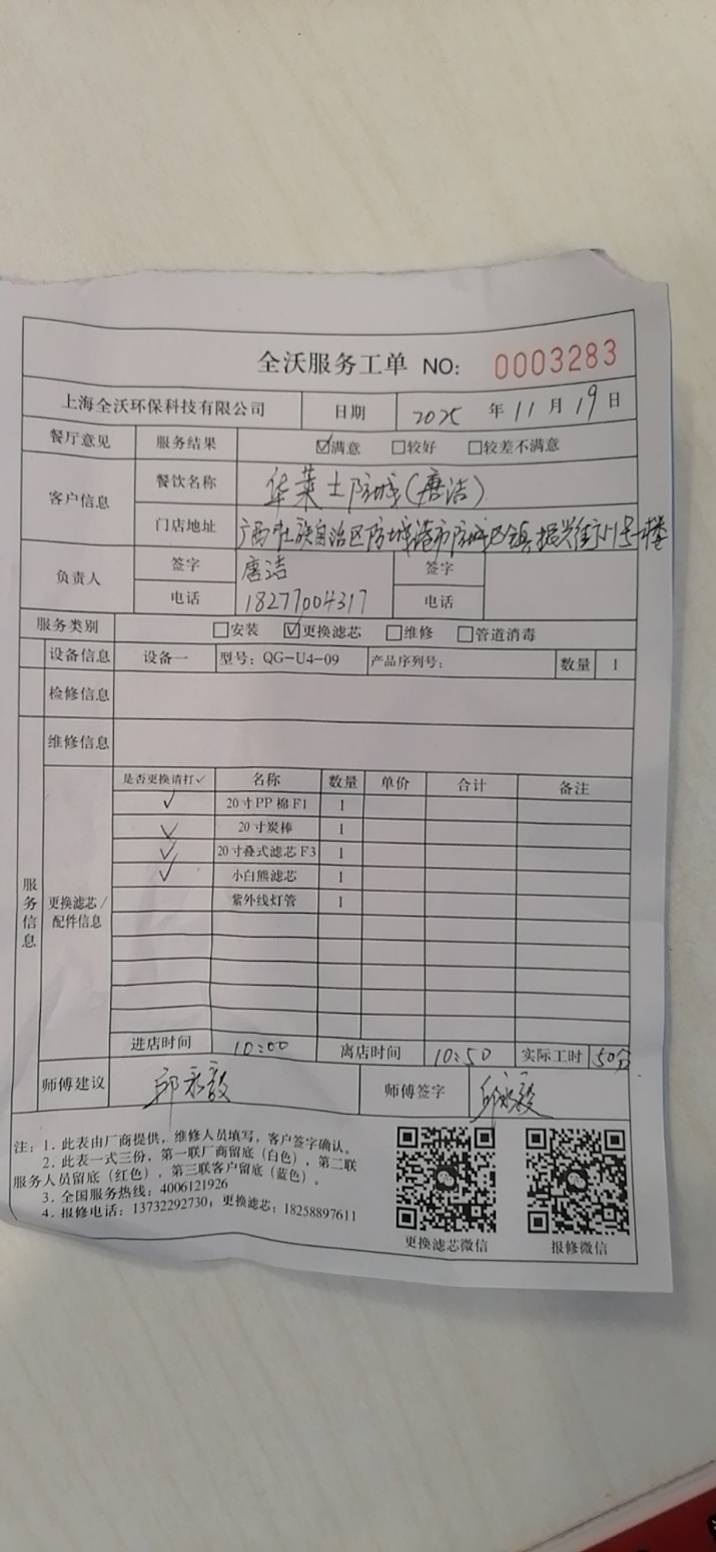 全沃服务工单 NO: 0003283
上海全沃环保科技有限公司 日期 2025 年 11 月 19 日
餐厅意见 服务结果 ☑满意 □较好 □较差不满意
客户信息 餐饮名称 华莱士防城(唐洁)
门店地址 广西壮族自治区防城港市防城区 镇振兴街 号一楼
负责人 签字 唐洁 签字
电话 18277004317 电话
服务类别 □安装 ☑更换滤芯 □维修 □管道消毒
设备信息 设备一 型号: QG-U4-09 产品序列号: 数量 1
检修信息
维修信息
服务信息 更换滤芯/配件信息
是否更换请打✓ 名称 数量 单价 合计 备注
✓ 20寸PP棉F1 1
✓ 20寸炭棒 1
✓ 20寸叠式滤芯F3 1
✓ 小白熊滤芯 1
紫外线灯管 1
进店时间 10:00 离店时间 10:50 实际工时 50分
师傅建议 邱永毅 师傅签字 邱永毅
注: 1. 此表由厂商提供, 维修人员填写, 客户签字确认。
2. 此表一式三份, 第一联厂商留底(白色), 第二联
服务人员留底(红色), 第三联客户留底(蓝色)。
3. 全国服务热线: 4006121926
4. 报修电话: 13732292730; 更换滤芯: 18258897611
更换滤芯微信 报修微信